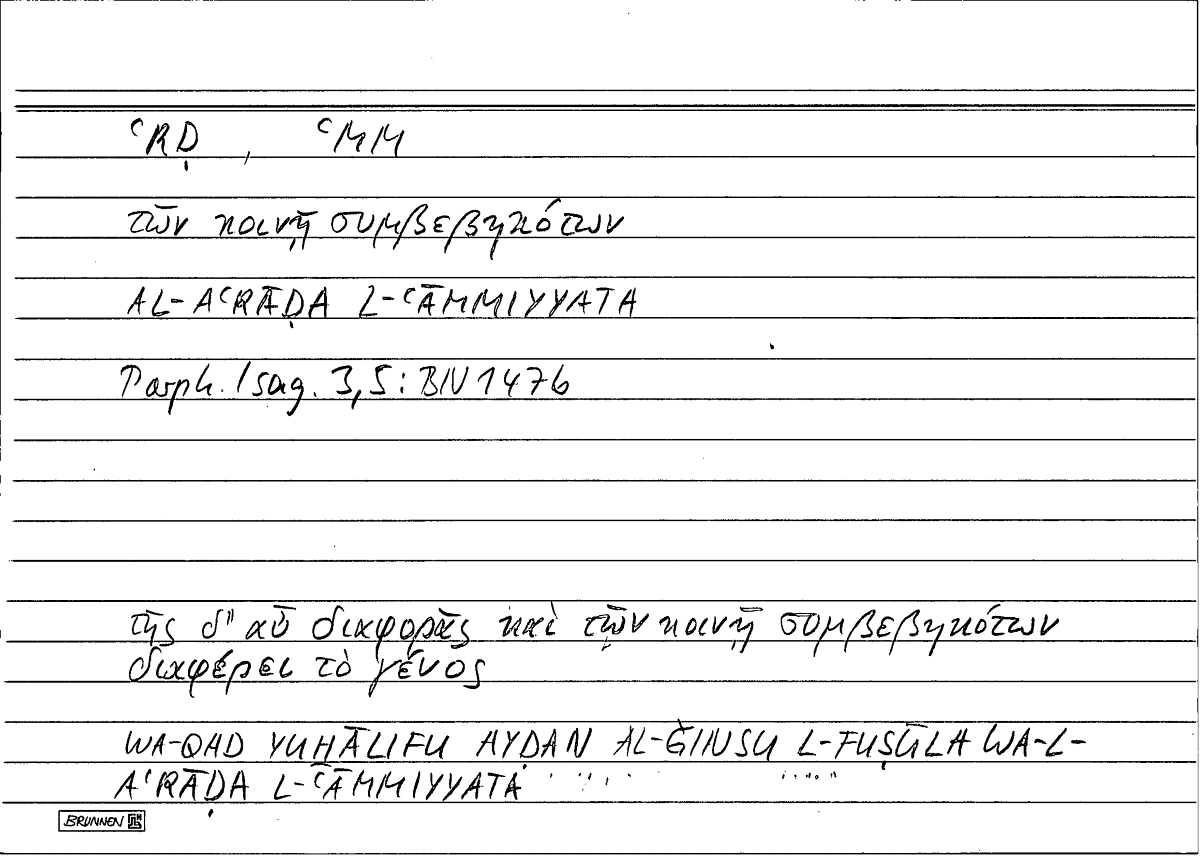 ʿRḌ , ʿMM
τῶν κοινῇ συμβεβηκότων
AL-AʿRĀḌA L-ʿĀMMIYYATA
Porph. Isag. 3,5: BN 1476
τῆς δ' αὖ διαφορᾶς καὶ τῶν κοινῇ συμβεβηκότων
διαφέρει τὸ γένος
WA-QAD YUḪĀLIFU AYḌAN AL-ĞINSU L-FUṢŪLA WA-L-
AʿRĀḌA L-ʿĀMMIYYATA
BRUNNEN